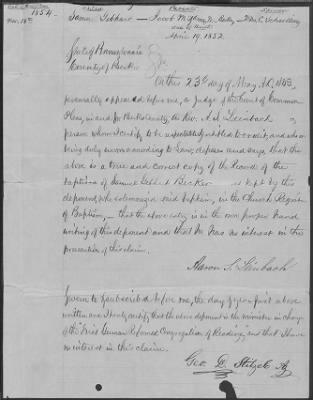 1854.
April 19, 1852
State of Pennsylvania
County of Berks
On this 23d day of May A.D. 1883,
personally appeared before me, a Judge of the Court of Common
Pleas, in and for Berks County, the Rev. A. S. Leinbach
person whom I certify to be respectable & entitled to credit, and who
being duly sworn according to Law, deposes and says that the
above is a true and correct copy of the Records of the
baptism of Samuel Gebhart Becker as kept by this
deponent, who solemnized said baptism, in the Church Register
of Baptism, — that the above entry is in the own proper hand
writing of this deponent and that he has no interest in the
prosecution of this claim.
Aaron S. Leinbach
Sworn to & subscribed before me, the day & year just above
written and I hereby certify that the above deponent is the minister in charge
of the "First German Reformed Congregation of Reading" and that I have
no interest in this claim.
Geo D. Stitzel